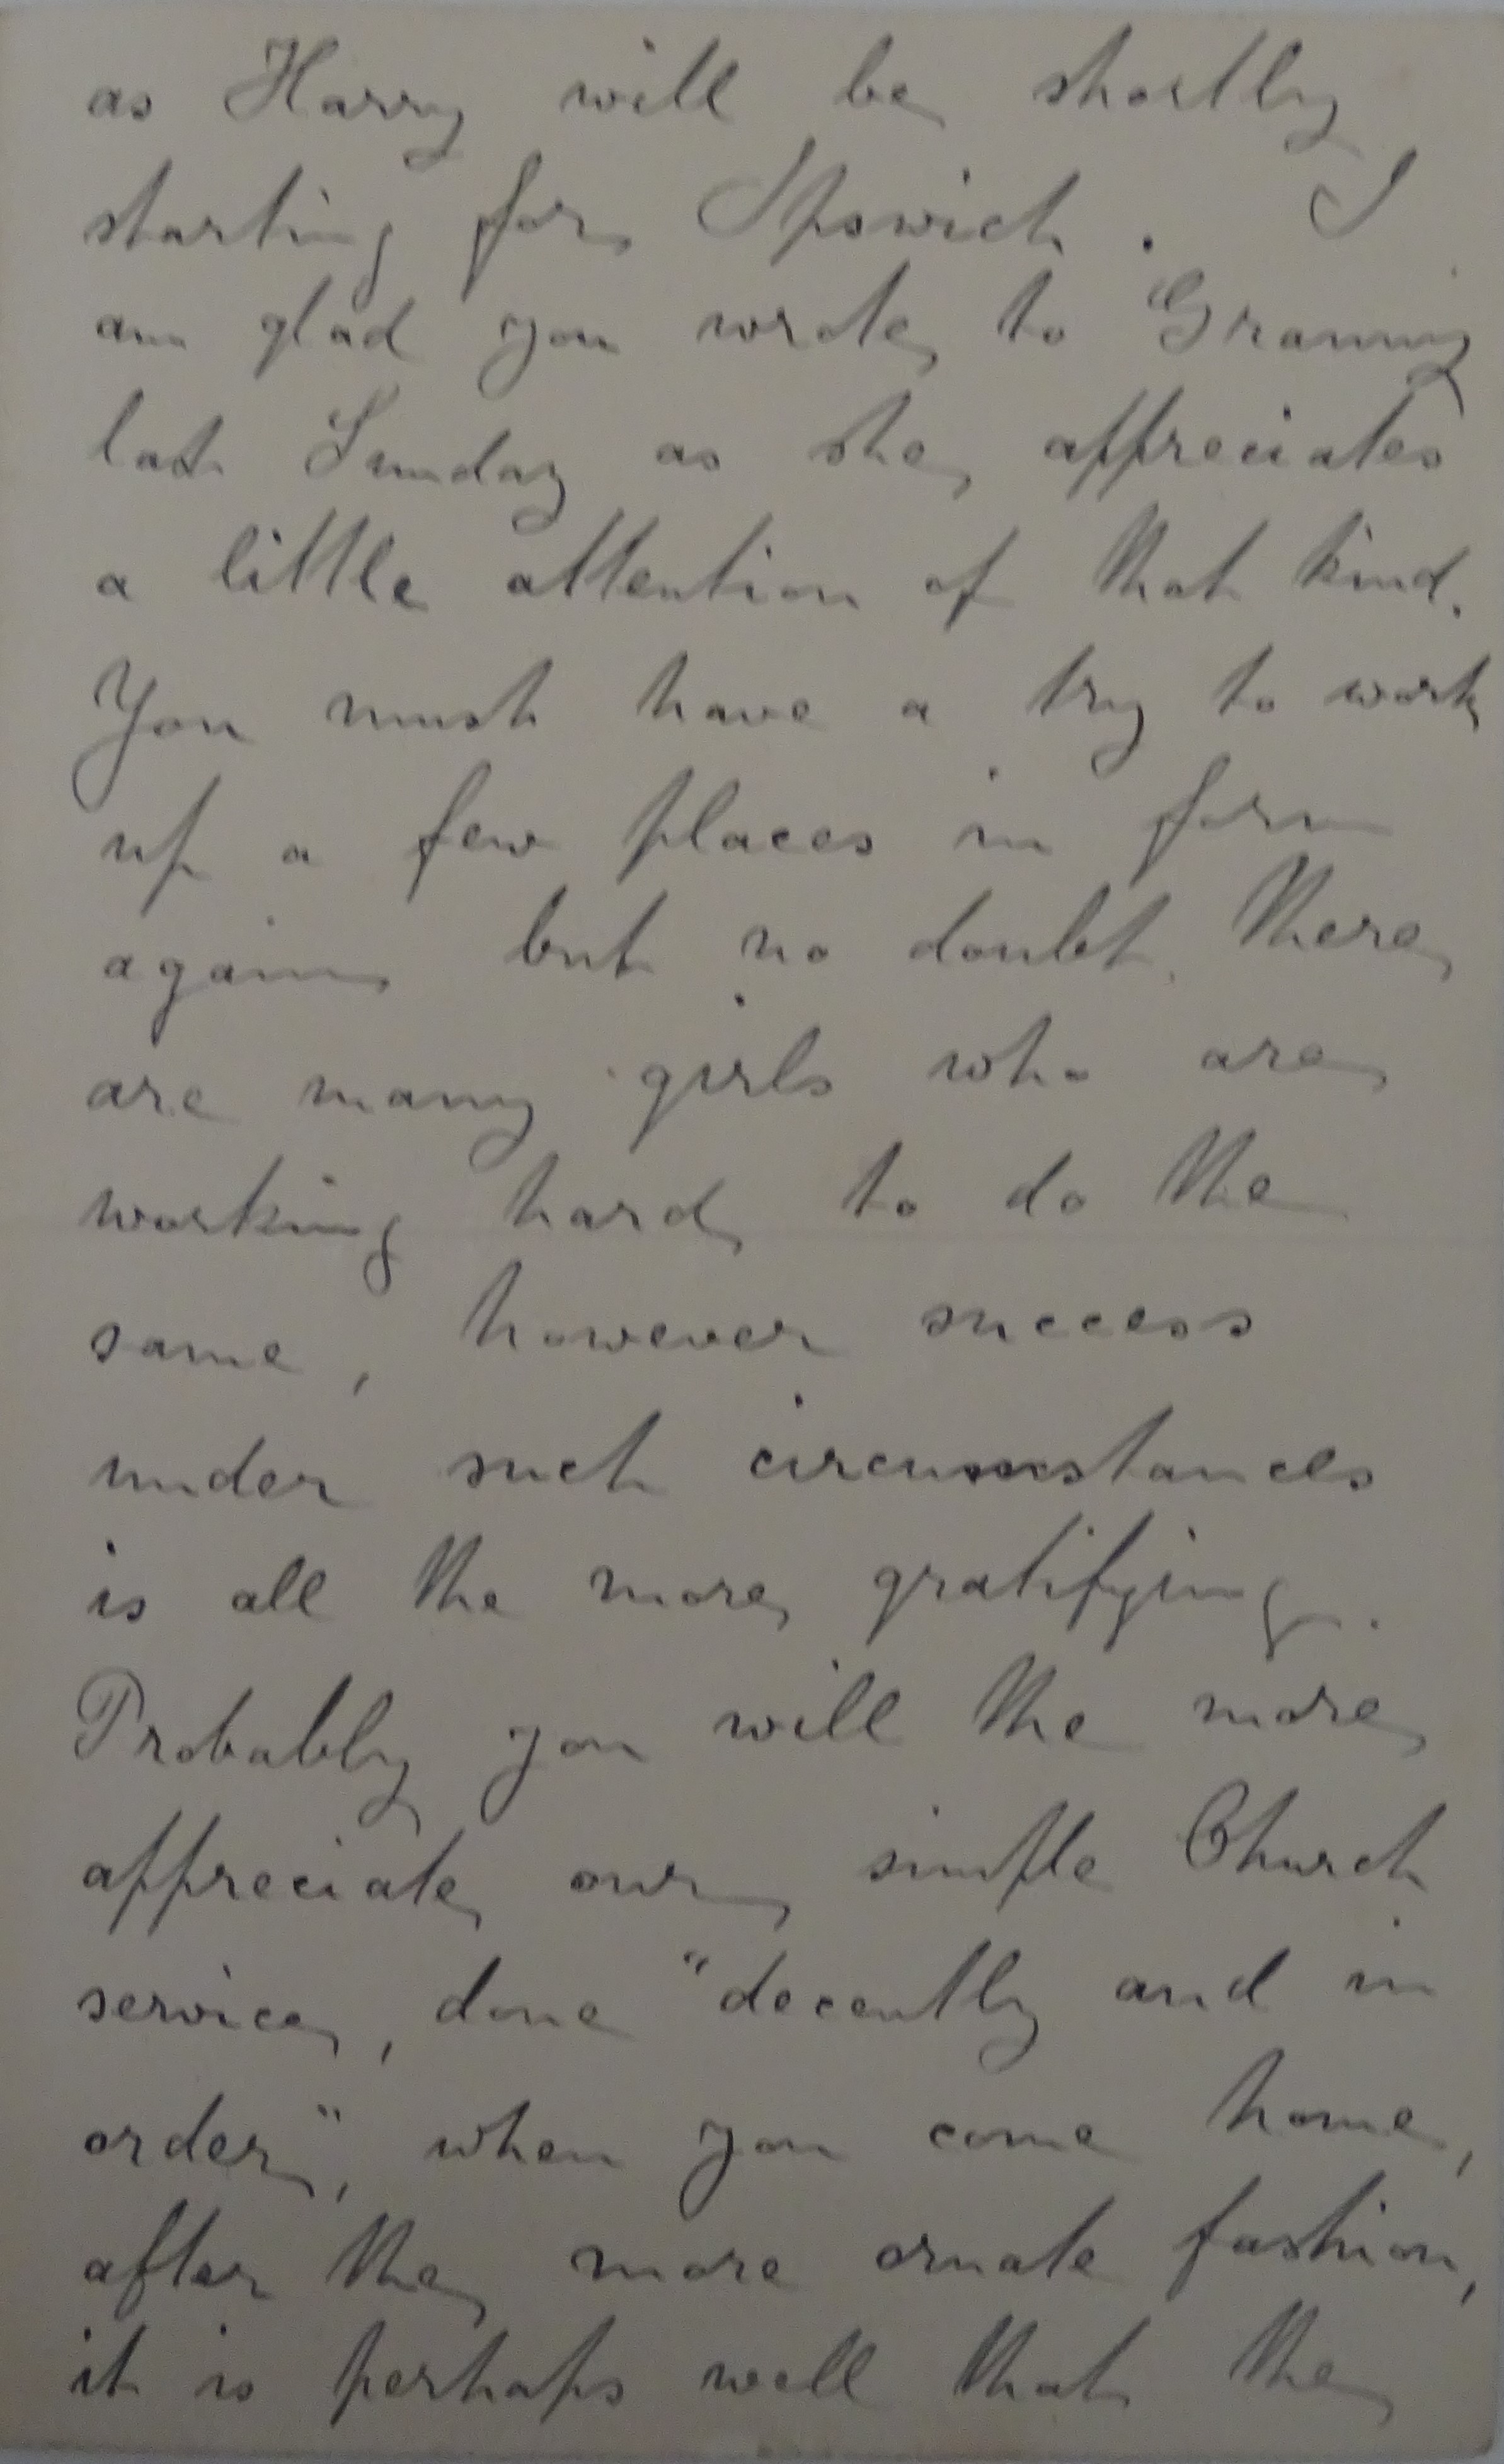 as Harry will be shortly
starting for Ipswich. I
am glad you wrote to Granny
last Sunday as she appreciates
a little attention of that kind.
You must have a try to work
up a few places in form
again but no doubt there
are many girls who are
working hard to do the
same, however success
under such circumstances
is all the more gratifying.
Probably you will the more
appreciate our simple Church
service, done "decently and in
order", when you come home,
after the more ornate fashion,
it is perhaps well that the